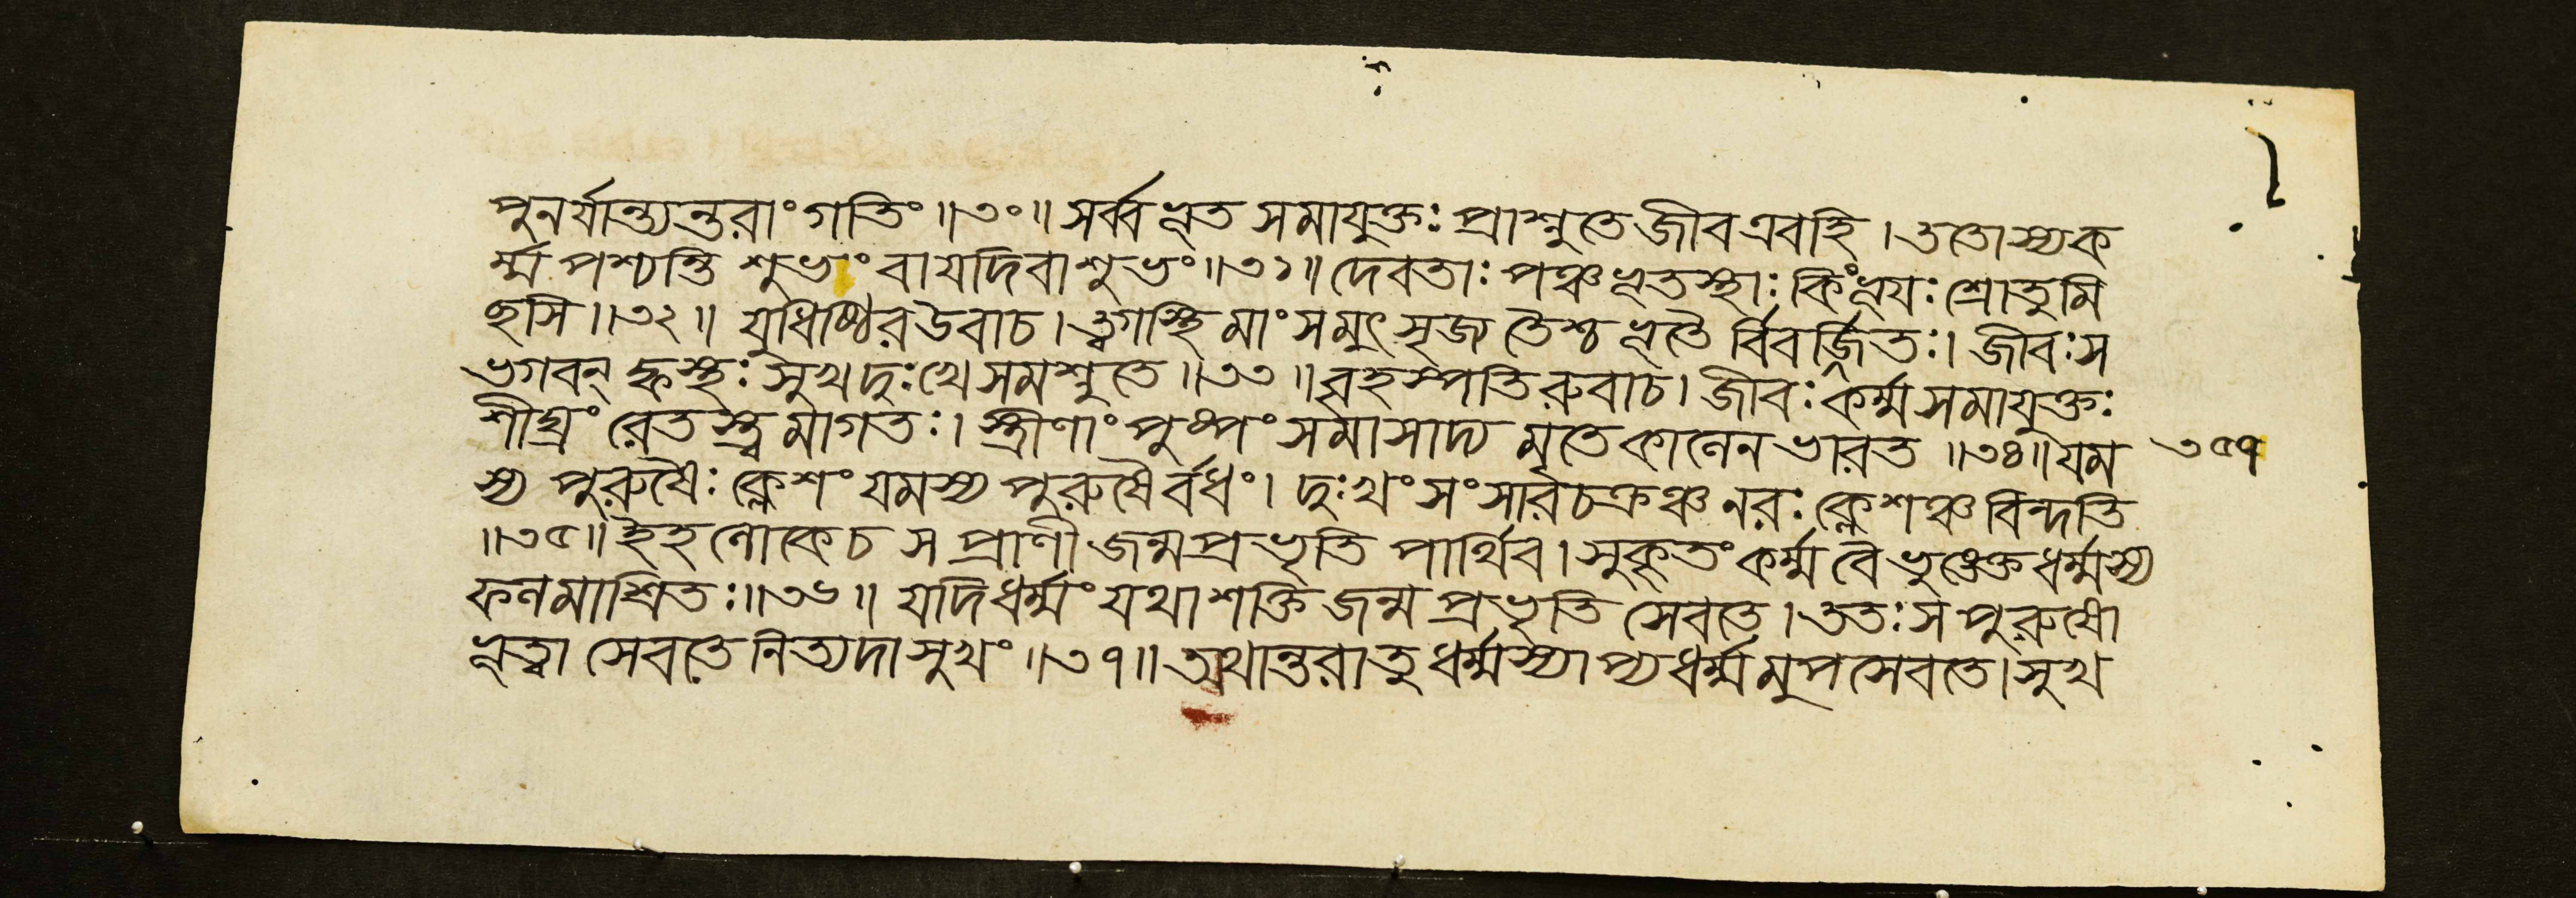 পুনর্যান্ত্যন্তরাং গতিং ॥৩০॥ সর্ব্বভূত সমাযুক্তঃ প্রাশ্নুতে জীব এবহি । ততোস্যক
র্ম্ম পশ্যন্তি শুভাংবা যদিবাশুভং ॥৩১॥ দেবতাঃ পঞ্চভূতস্থাঃ কিংভূযঃ শ্রোতুমি
ছসি ॥৩২॥ যুধিষ্ঠিরউবাচ । ত্বগস্থি মাংসমুৎসৃজ্য তৈশ্চ ভূতৈ র্বিবর্জ্জিতঃ । জীবঃস
ভগবন্ ক্বস্থঃ সুখদুঃখে সমশ্নুতে ॥৩৩॥ বৃহস্পতিরুবাচ । জীবঃ কর্ম্মসমাযুক্তঃ
শীঘ্রং রেতস্ত্বমাগতঃ । স্ত্রীণাং পুষ্পং সমাসাদ্য মূতেকালেন ভারত ॥৩৪॥ যম ৩৫৭
স্য পুরুষৈঃ ক্লেশং যমস্য পুরুষৈর্বধং । দুঃখং সংসারচক্রঞ্চ নরঃ ক্লেশঞ্চ বিন্দতি
॥৩৫॥ ইহলোকেচ স প্রাণী জন্মপ্রভৃতি পার্থিব । সুকৃতং কর্ম্ম বৈ ভুঙেক্ত ধর্ম্মস্য
ফলমাশ্রিতঃ ॥৩৬॥ যদিধর্ম্মং যথাশক্তি জন্ম প্রভৃতি সেবতে । ততঃ স পুরুষো
ভূত্বা সেবতে নিত্যদা সুখং ॥৩৭॥ অথান্তরাতু ধর্ম্মস্যাপ্যধর্ম্মমুপসেবতে । সুখ